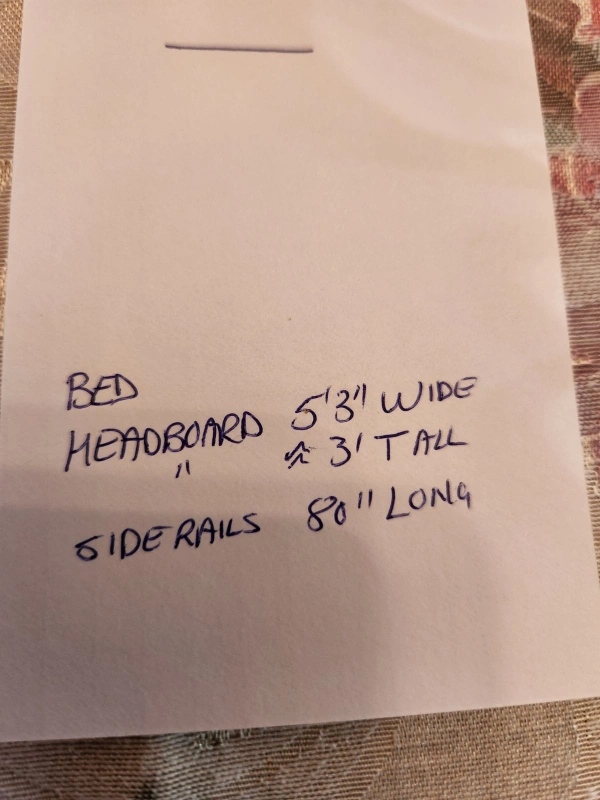 BED
HEADBOARD 5'3" WIDE
" ≈ 3' TALL
SIDE RAILS 80" LONG